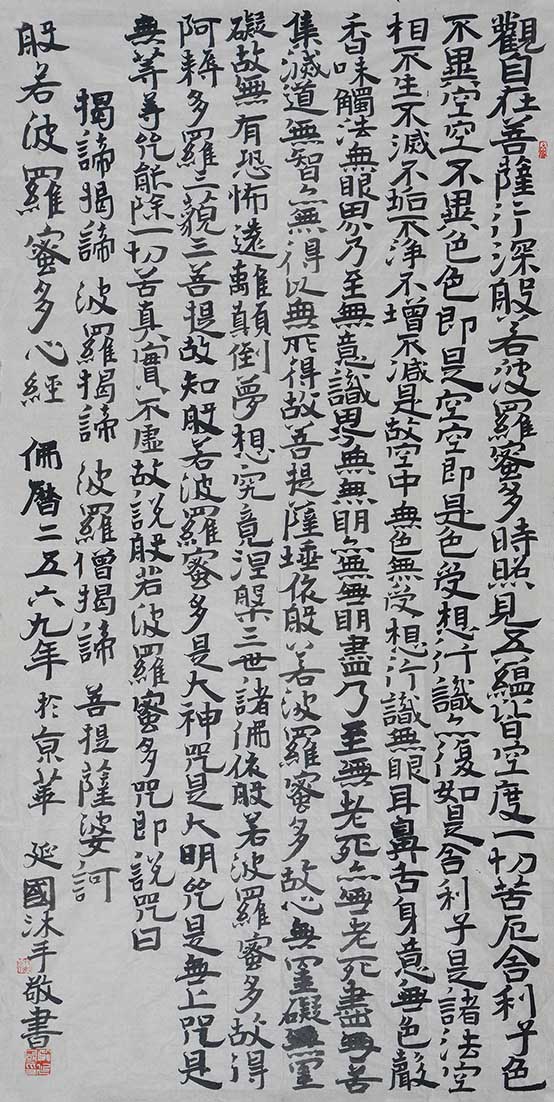 觀自在菩薩行深般若波羅蜜多時照見五蘊皆空度一切苦厄舍利子色
不異空空不異色色即是空空即是色受想行識亦復如是舍利子是諸法空
相不生不滅不垢不淨不增不減是故空中無色無受想行識無眼耳鼻舌身意無色聲
香味觸法無眼界乃至無意識界無無明亦無無明盡乃至無老死亦無老死盡無苦
集滅道無智亦無得以無所得故菩提薩埵依般若波羅蜜多故心無罣礙無罣
礙故無有恐怖遠離顛倒夢想究竟涅槃三世諸佛依般若波羅蜜多故得
阿耨多羅三藐三菩提故知般若波羅蜜多是大神咒是大明咒是無上咒是
無等等咒能除一切苦真實不虛故說般若波羅蜜多咒即說咒曰
揭諦揭諦 波羅揭諦 波羅僧揭諦 菩提薩婆訶
般若波羅蜜多心經 佛曆二五六九年於京華 延國沐手敬書